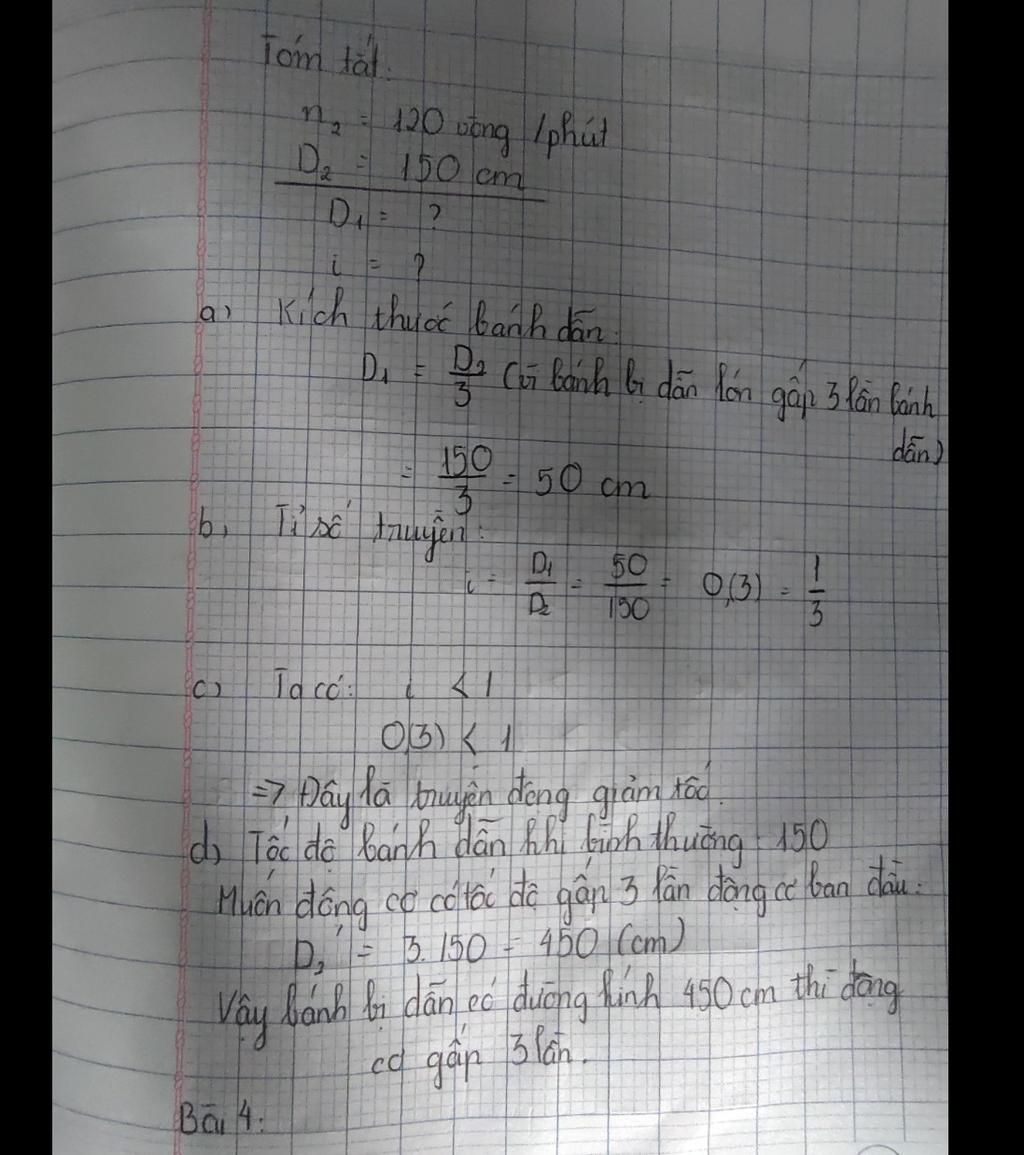 Tóm tắt:
n₂ = 120 vòng /phút
D₂ = 150 cm
D₁ = ?
i = ?
a) Kích thước bánh dẫn:
D₁ = D₂/3 (vì bánh bị dẫn lớn gấp 3 lần bánh
dẫn)
= 150/3 = 50 cm
b, Tỉ số truyền:
i = D₁/D₂ = 50/150 = 0,(3) = 1/3
c) Ta có: i < 1
0,(3) < 1
=> Đây là truyền động giảm tốc.
d) Tốc độ bánh dẫn khi bình thường : 150
Muốn động cơ có tốc độ gấp 3 lần động cơ ban đầu:
D₂' = 3.150 = 450 (cm)
Vậy bánh bị dẫn có đường kính 450 cm thì động
cơ gấp 3 lần.
Bài 4: